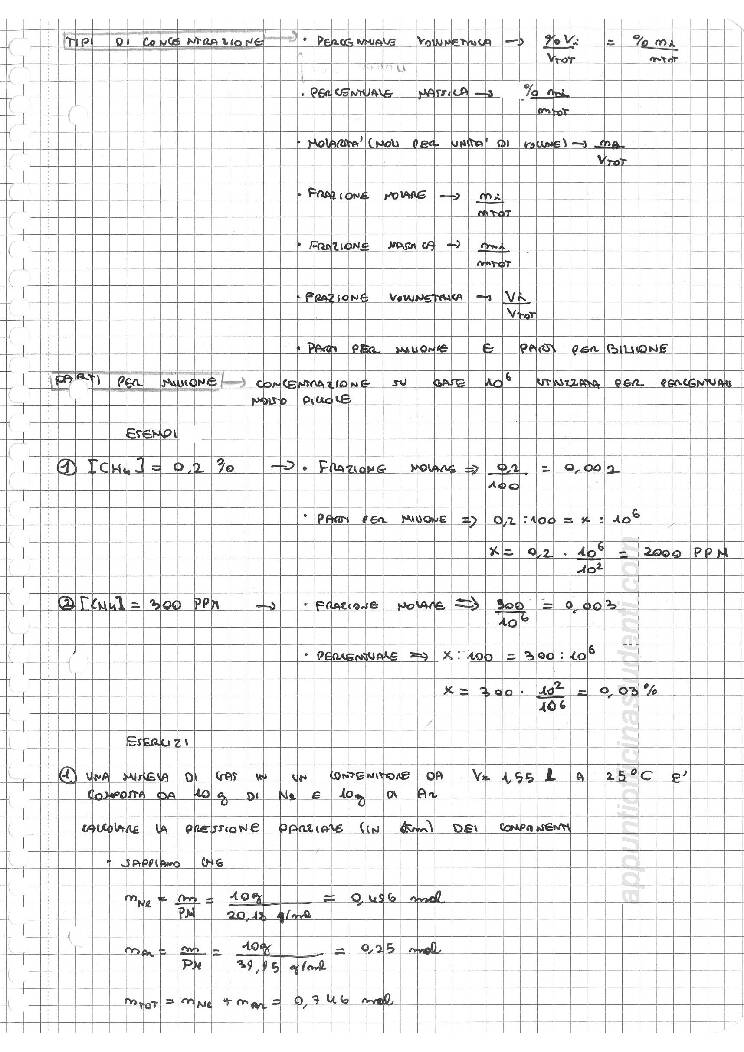 TIPI DI CONCENTRAZIONE → • PERCENTUALE VOLUMETRICA → % Vi / VTOT = % ni / nTOT
• PERCENTUALE MASSICA → % mi / mTOT
• MOLARITA' (MOLI PER UNITA' DI VOLUME) → nA / VTOT
• FRAZIONE MOLARE → ni / nTOT
• FRAZIONE MASSICA → mi / mTOT
• FRAZIONE VOLUMETRICA → Vi / VTOT
• PARTI PER MILIONE E PARTI PER BILIONE
PARTI PER MILIONE → CONCENTRAZIONE SU BASE 10⁶ UTILIZZATA PER PERCENTUALI
MOLTO PICCOLE
ESEMPI
① [CH₄] = 0,2 % → • FRAZIONE MOLARE ⇒ 0,2 / 100 = 0,002
• PARTI PER MILIONE ⇒ 0,2 : 100 = x : 10⁶
x = 0,2 · 10⁶ / 10² = 2000 PPM
② [CH₄] = 300 PPM → • FRAZIONE MOLARE ⇒ 300 / 10⁶ = 0,003
• PERCENTUALE ⇒ x : 100 = 300 : 10⁶
x = 300 · 10² / 10⁶ = 0,03 %
ESERCIZI
① UNA MISCELA DI GAS IN UN CONTENITORE DA V = 1,55 l A 25°C E'
COMPOSTA DA 10 g DI Ne E 10 g DI Ar
CALCOLARE LA PRESSIONE PARZIALE (IN atm) DEI COMPONENTI
• SAPPIAMO CHE
nNe = m / PM = 10g / 20,18 g/mol = 0,496 mol
nAr = m / PM = 10g / 39,95 g/mol = 0,25 mol
nTOT = nNe + nAr = 0,746 mol
appuntiofficinastudenti.com